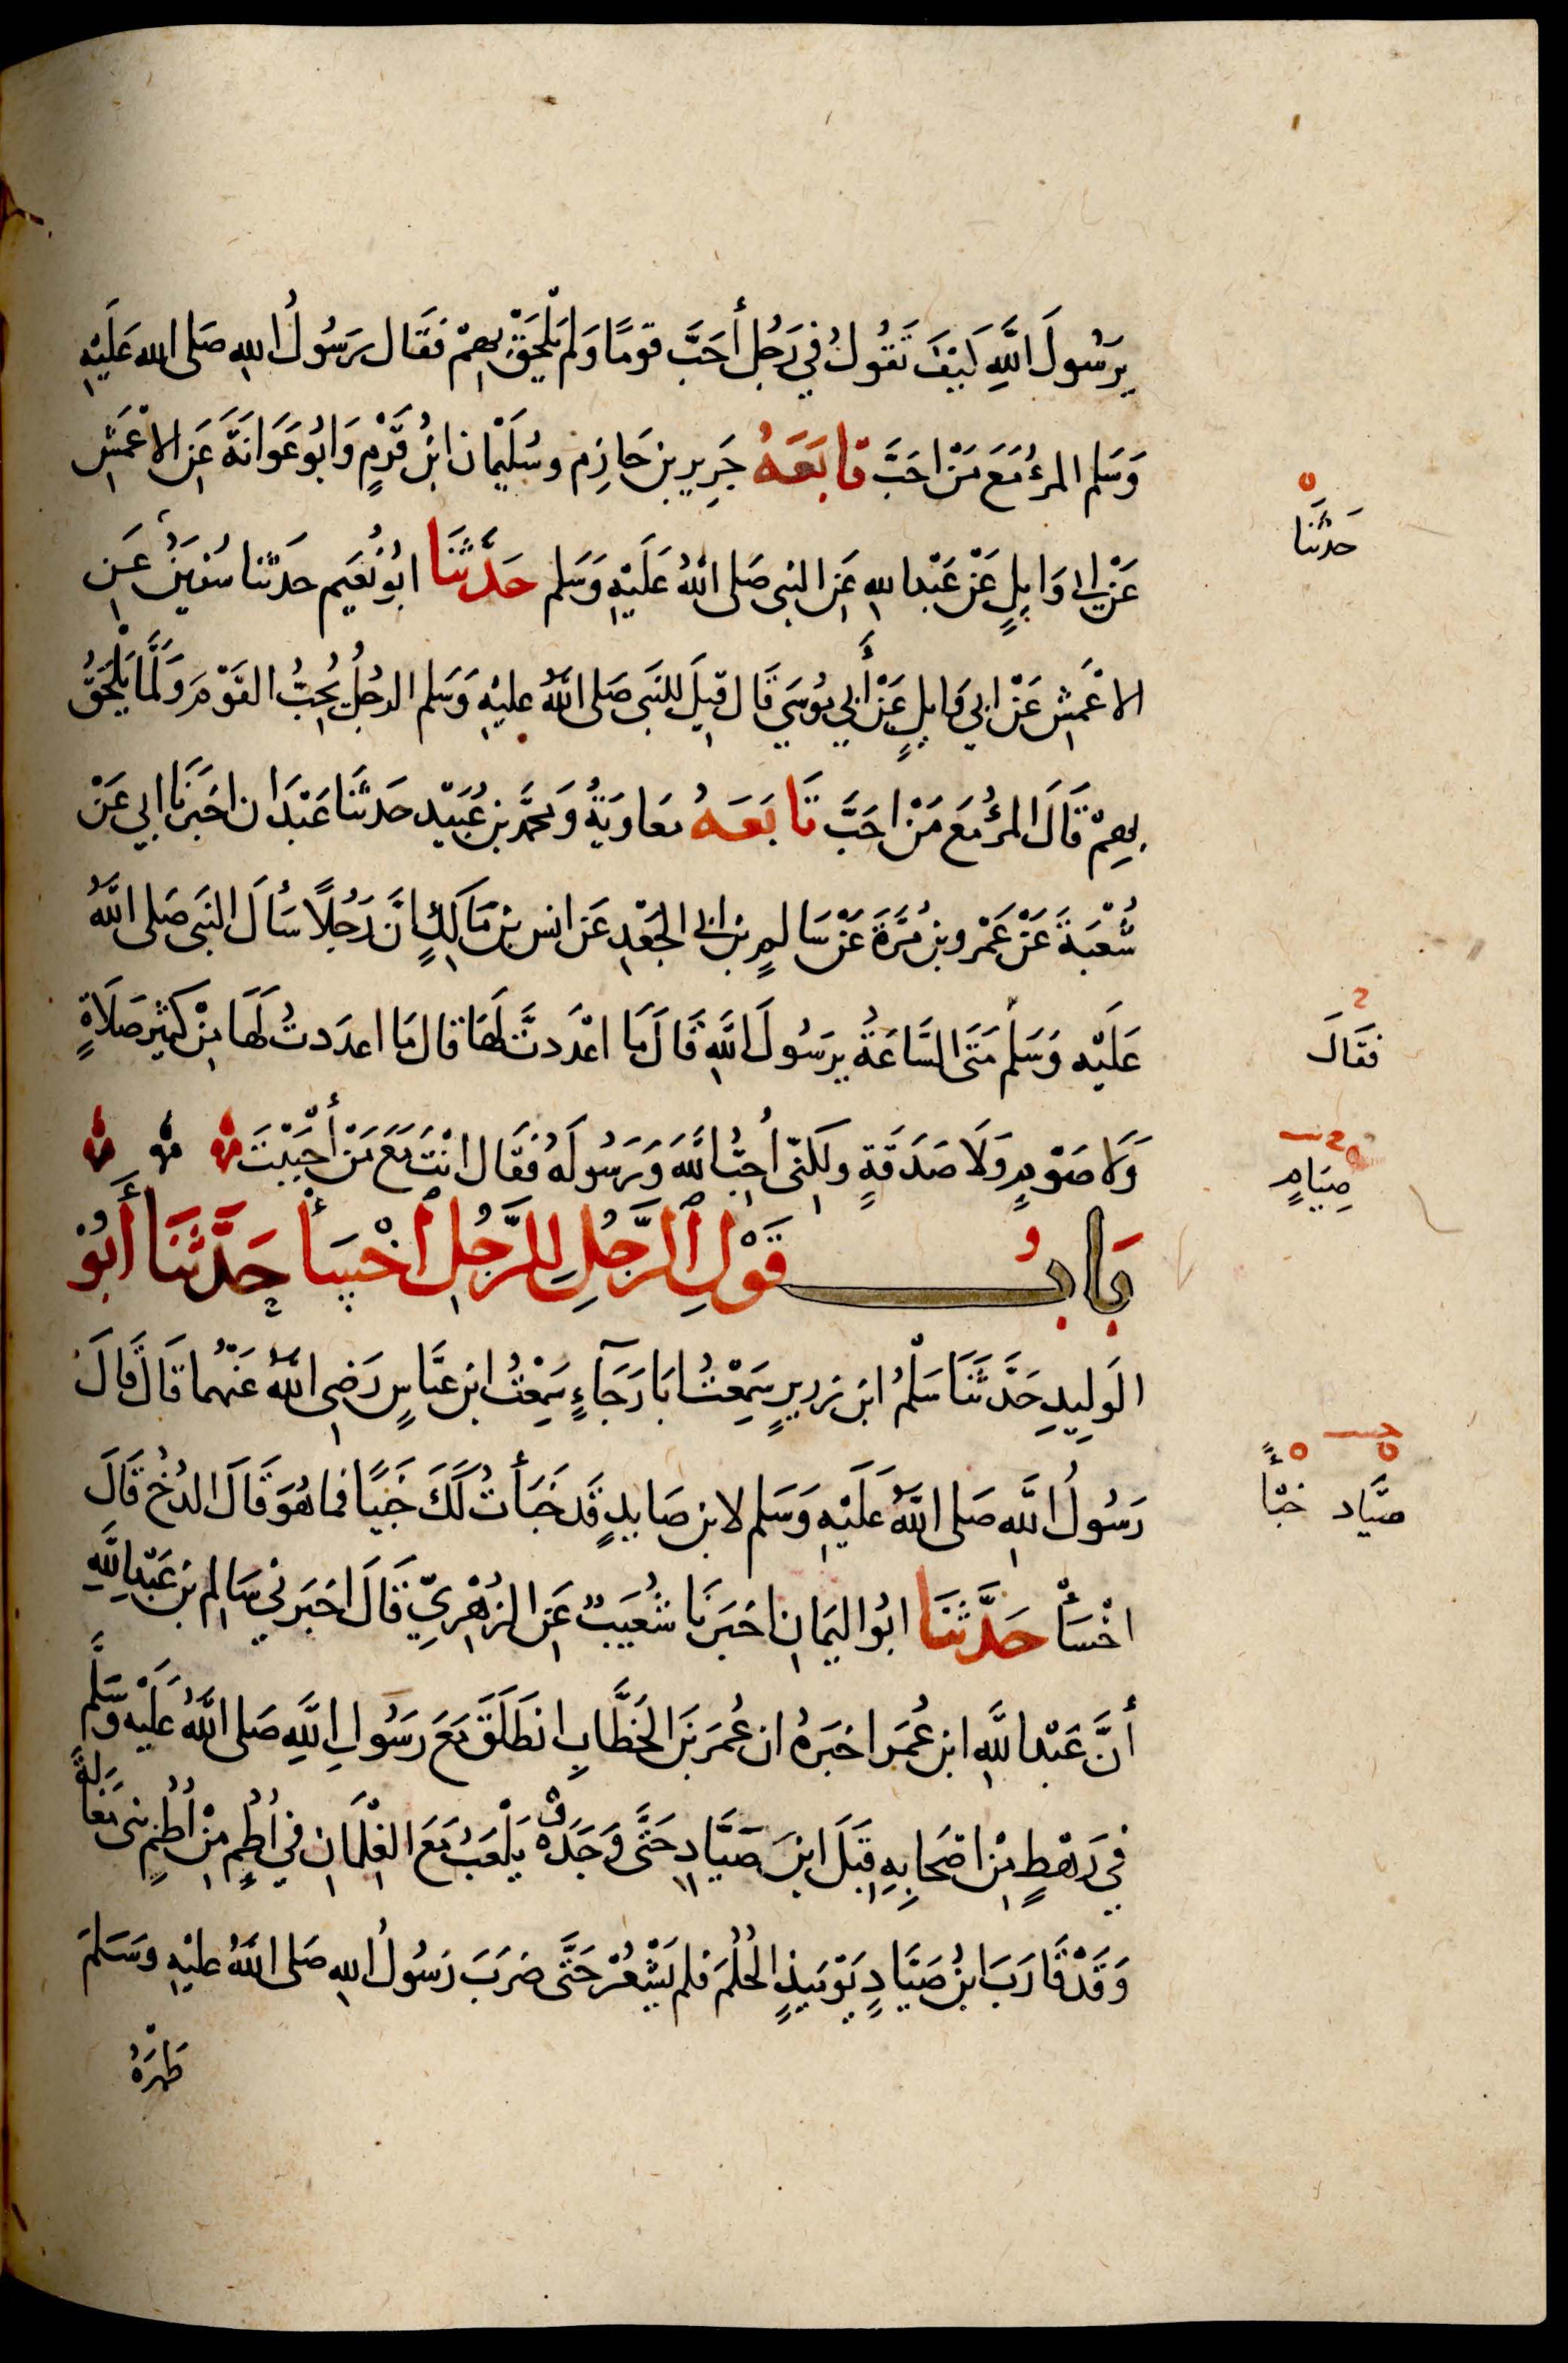 يرَسُولَ اللَّهِ كَيْفَ تَقُولُ فِي رَجُلٍ أَحَبَّ قومًا وَلَمْ يَلْحَقْ بِهِمْ فَقَال رَسُولُ اللهِ صَلى الله عَلَيْهِ
وَسَلم المرْءُ مَعَ مَنْ احَبَّ تابَعَهُ جَرِير بن حَازِم وسُلَيْمان ابْنُ قَرْمٍ وَابُو عَوَانَةَ عَنِ الاعْمَشِ
عَنْ ابي وَايِلٍ عَنْ عَبْد اللهِ عَنِ النبي صَلى اللهُ عَلَيْهِ وَسَلم حَدَّثَنَا ابُو نُعَيم حدَثنا سُفْيَنُ عَنِ
حَدثنَا
الاعْمَشِ عَنْ ابِي وَايِلٍ عَنْ أَبِي مُوسَي قَال قِيلَ لِلنَّبِي صَلى اللهُ عليْهِ وَسَلم الرجُلُ يُحِبُّ القَوْمَ وَلَمَّا يَلْحَقْ
بِهِمْ قَالَ المرْءُ مَعَ مَنْ احَبَّ تَابَعَهُ مُعَاويَةُ وَمحمَّد بن عُبَيْد حَدثَنَا عَبْدَان اخبَرَنَا ابِي عَنْ
شُعْبَةَ عَنْ عَمْرو بنِ مُرَّةَ عَنْ سَالِمِ بن ابي الجَعْدِ عَن انس بْن مَالِكٍ انَّ رَجُلًا سَأَلَ النبَي صَلى اللَّهُ
عَلَيْهِ وَسَلمْ مَتَى السَّاعَةُ يرَسُولَ اللَّهِ قَالَ مَا اعْدَدتَّ لَهَا قال مَا اعدَدتُ لَهَا مِنْ كَثِيرِ صَلَاةٍ
فَقَالَ
وَلا صَوْمٍ وَلَا صَدَقَةٍ ولكِنّي أُحِبُّ اللَّهَ وَرَسُولَهُ فَقَال انْتَ مَعَ مَنْ أَحْبَبْتَ
صِيَامٍ
بَابُ قَوْلِ الرَّجُلِ لِلرَّجُلِ اخْسَأْ حَدَّثَنَا أَبُوْ
الوَلِيدِ حَدَّثَنَا سَلْمُ ابن زرِيرٍ سَمِعْتُ ابَا رَجَآءٍ سَمِعْتُ ابن عبَّاسٍ رَضِي اللهُ عَنْهُما قَال قَالَ
رَسُولُ اللَّهِ صَلى اللَّهُ عَلَيْهِ وَسَلم لابن صَايِدٍ قَد خَبَأتُ لَكَ خَبِيًا فما هُوَ قَالَ الدُخُ قَالَ
صيَّاد خبْأً
اخْسَأْ حَدَّثَنَا ابُو اليَمَانِ اخبَرَنَا شُعَيبٌ عَنِ الزُهْرِيِّ قَالَ اخبَرَنِي سَالِم بن عَبْدِ اللَّهِ
أنَّ عَبْد اللَّهِ ابن عُمَر اخبَرَهُ ان عُمَر بْنَ الخَطَّابِ انطَلَقَ مَعَ رَسُولِ اللَّهِ صَلى اللَّهُ عَلَيْهِ وَسَلَّم
فِي رَهْطٍ مِنْ اصْحَابِهِ قِبَلَ ابنِ صَيَّادٍ حَتَّى وَجَدَهُ يَلْعَبُ مَعَ الغِلْمَانِ فِي اُطُمٍ مِنْ اُطُمِ بني مَغَالَةَ
وَقَدْ قَارَبَ ابْنُ صَيَّادٍ يَوْمَيِذٍ الحُلُمَ فلم يَشْعُرْ حَتَّى ضَرَبَ رَسُولُ اللهِ صَلى اللَّهُ عليْهِ وسَسَلمَ
ظهْرَهُ